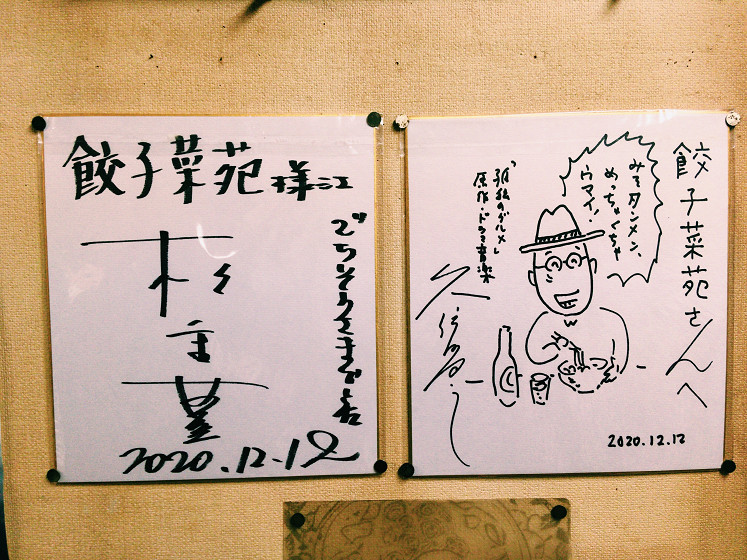 餃子菜苑様江
ごちそうさまでした
2020.12.12
餃子菜苑さんへ
みそタンメン、
めっちゃくちゃ
ウマイ!
「孤独のグルメ」
原作・ドラマ音楽
久住昌之
2020.12.12